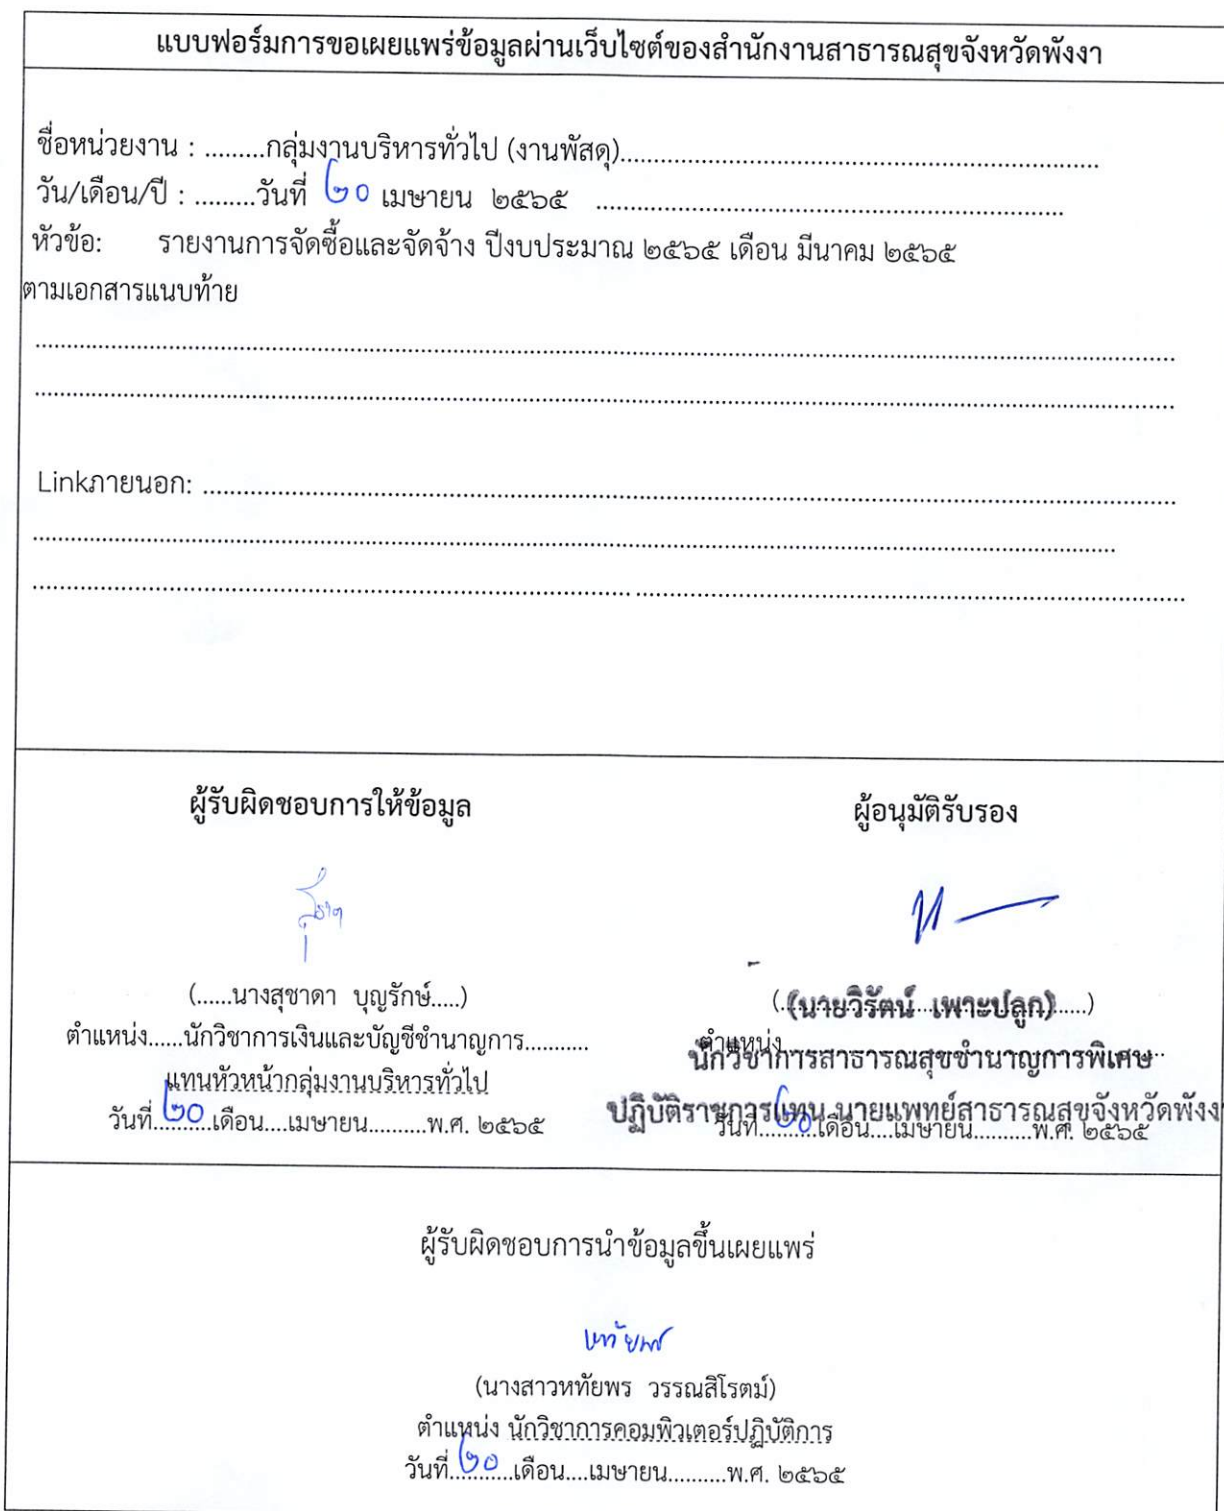 แบบฟอร์มการขอเผยแพร่ข้อมูลผ่านเว็บไซต์ของสำนักงานสาธารณสุขจังหวัดพังงา
ชื่อหน่วยงาน : .........กลุ่มงานบริหารทั่วไป (งานพัสดุ)..........................................................................
วัน/เดือน/ปี : .........วันที่ ๒๐ เมษายน ๒๕๖๕ ........................................................................
หัวข้อ: รายงานการจัดซื้อและจัดจ้าง ปีงบประมาณ ๒๕๖๕ เดือน มีนาคม ๒๕๖๕
ตามเอกสารแนบท้าย
Linkภายนอก: ..........................................................................
ผู้รับผิดชอบการให้ข้อมูล
สุชาดา
(......นางสุชาดา บุญรักษ์.....)
ตำแหน่ง......นักวิชาการเงินและบัญชีชำนาญการ...........
แทนหัวหน้ากลุ่มงานบริหารทั่วไป
วันที่..๒๐..เดือน....เมษายน..........พ.ศ. ๒๕๖๕
ผู้อนุมัติรับรอง
(นายวิรัตน์ เพาะปลูก)
ตำแหน่ง
นักวิชาการสาธารณสุขชำนาญการพิเศษ
ปฏิบัติราชการแทน นายแพทย์สาธารณสุขจังหวัดพังง
วันที่..๒๐..เดือน....เมษายน..........พ.ศ. ๒๕๖๕
ผู้รับผิดชอบการนำข้อมูลขึ้นเผยแพร่
หทัยพร
(นางสาวหทัยพร วรรณสิโรตม์)
ตำแหน่ง นักวิชาการคอมพิวเตอร์ปฏิบัติการ
วันที่..๒๐..เดือน....เมษายน..........พ.ศ. ๒๕๖๕